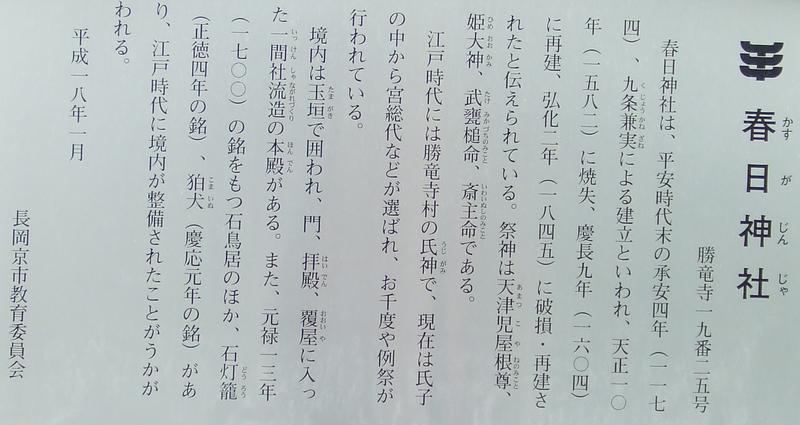 春日神社
勝竜寺一九番二五号
春日神社は、平安時代末の承安四年（一一七
四）、九条兼実による建立といわれ、天正一〇
年（一五八二）に焼失、慶長九年（一六〇四）
に再建、弘化二年（一八四五）に破損・再建さ
れたと伝えられている。祭神は天津児屋根尊、
姫大神、武甕槌命、斎主命である。
江戸時代には勝竜寺村の氏神で、現在は氏子
の中から宮総代などが選ばれ、お千度や例祭が
行われている。
境内は玉垣で囲われ、門、拝殿、覆屋に入っ
た一間社流造の本殿がある。また、元禄一三年
（一七〇〇）の銘をもつ石鳥居のほか、石灯籠
（正徳四年の銘）、狛犬（慶応元年の銘）があ
り、江戸時代に境内が整備されたことがうかが
われる。
平成一八年一月
長岡京市教育委員会